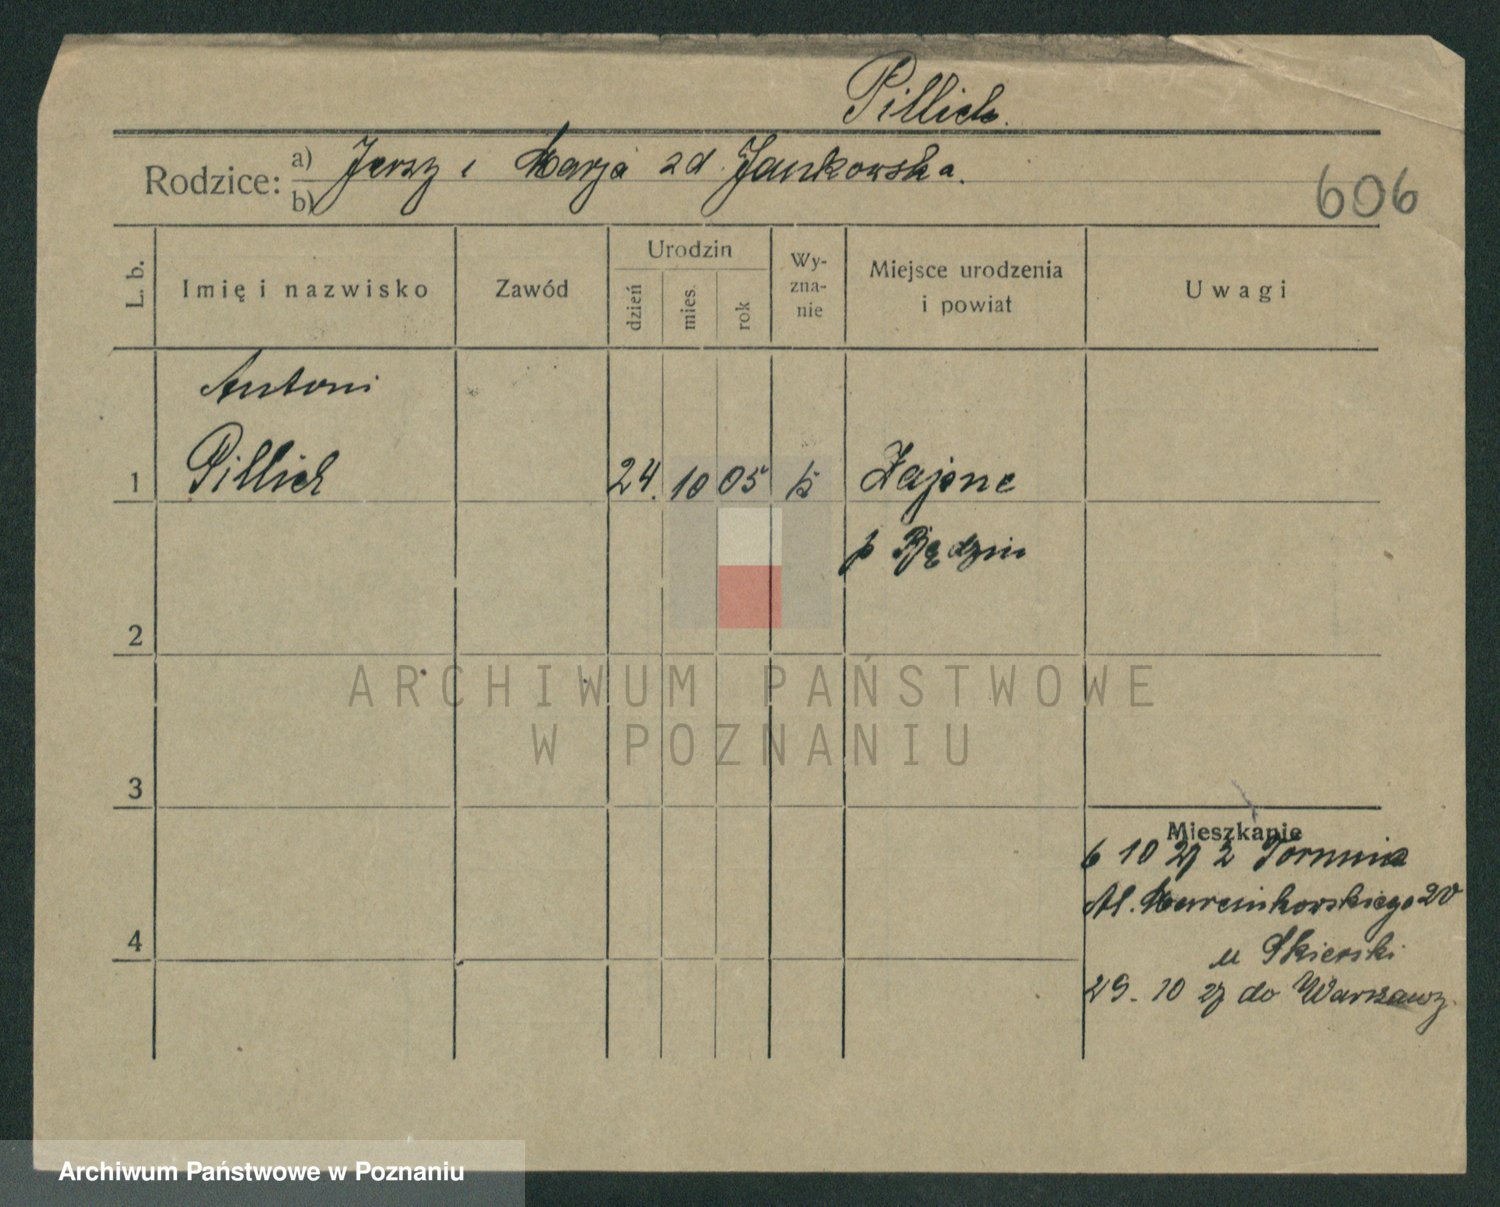 Pillich.
Rodzice: a) Jerzy i Marja zd. Jankowska.
b)
606
L. b.
Imię i nazwisko
Zawód
Urodzin
dzień
mies.
rok
Wy-
zna-
nie
Miejsce urodzenia
i powiat
Uwagi
Antoni
1 Pillich 24. 10 05
p Będzin
2
3
4
Mieszkanie
6 10 27 z Torunia
Al. Marcinkowskiego 20
u Skierski
29. 10 27 do Warszawy.
ARCHIWUM PAŃSTWOWE
W POZNANIU
Archiwum Państwowe w Poznaniu